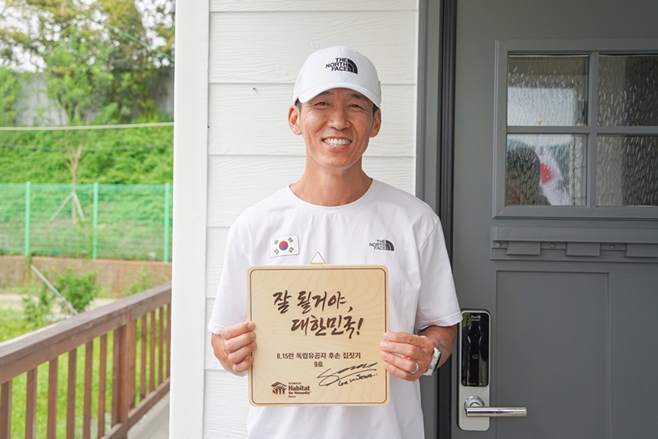 THE
NORTH
FACE
THE
NORTH
FACE
잘 될거야,
대한민국!
8.15런 독립유공자 후손 집짓기
9호
Habitat
for Humanity